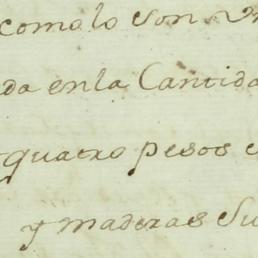 como lo son
da enla Cantida
quatro pesos
y maderas Su